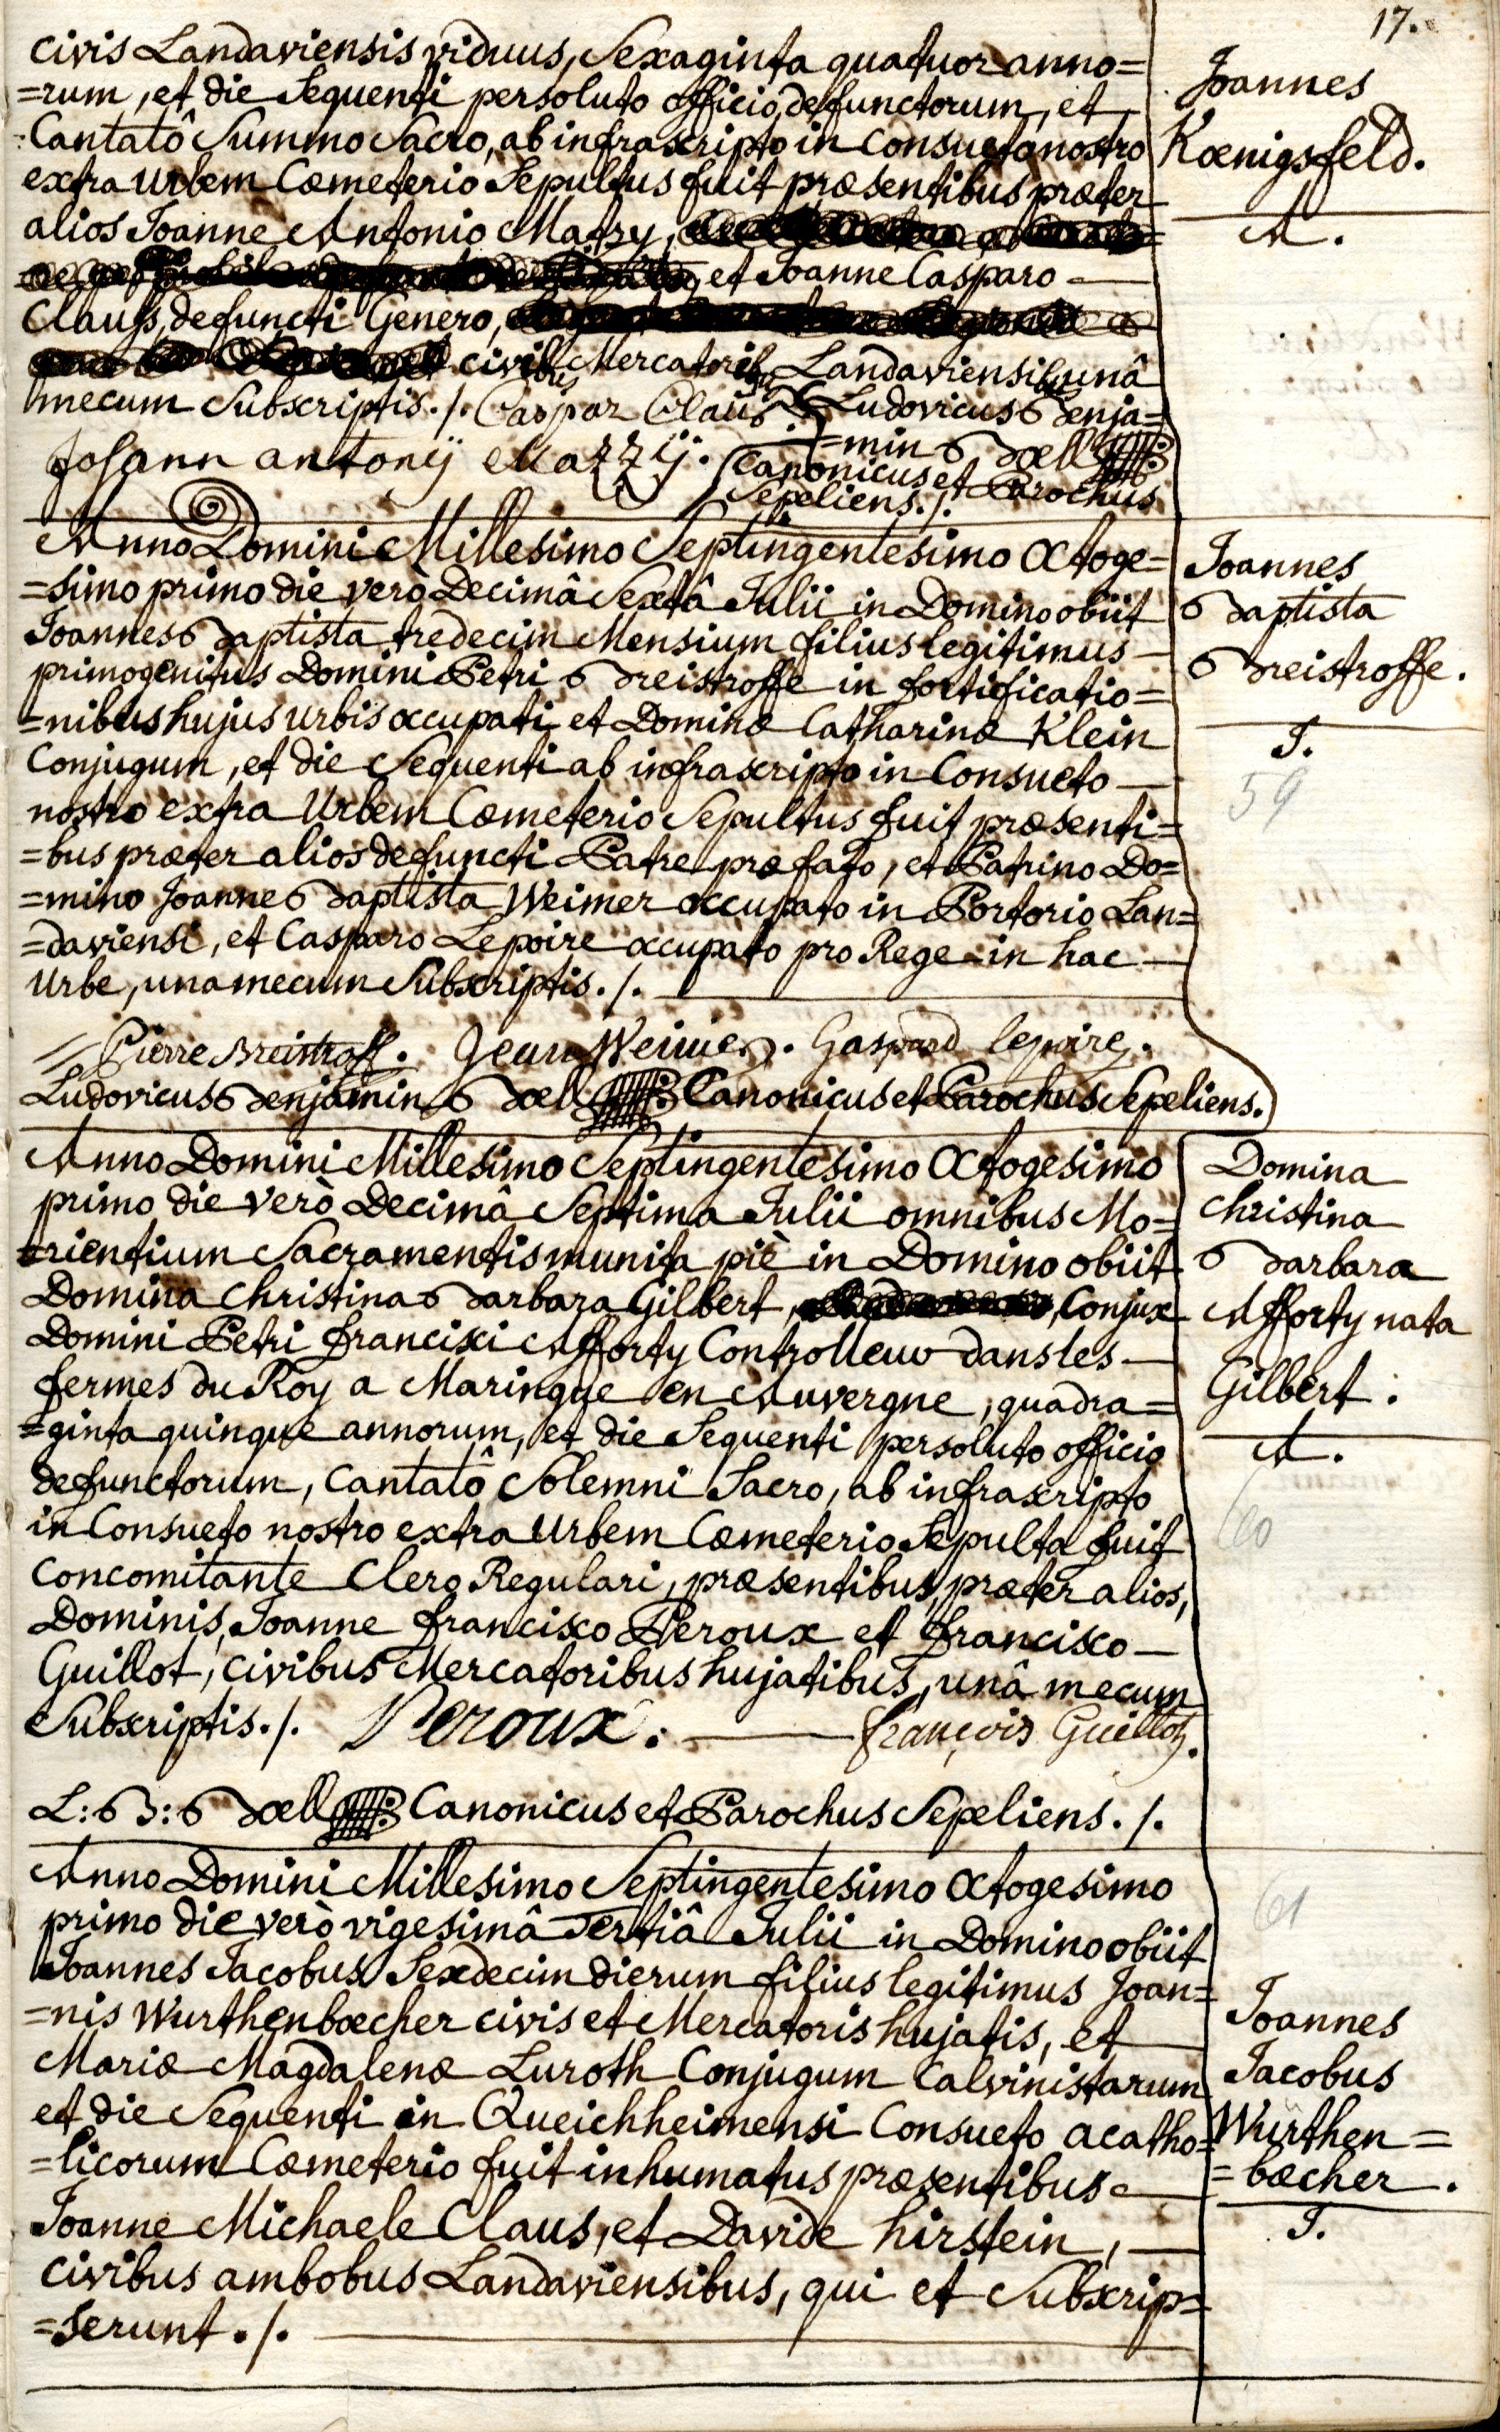 17.
civis Landaviensis viduus, Sexaginta quatuor anno=
=rum, et die Sequenti persoluto officio defunctorum, et
Cantatô Summo Sacro, ab infrascripto in Consueto nostro
extra Urbem Cœmeterio Sepultus fuit præsentibus præter
alios Joanne Antonio Matzy,
et Joanne Casparo
Clauss, defuncti Genero,
civibus Mercatoribus Landaviensibus unâ
mecum Subscriptis ./. Caspar Claus Ludovicus Benja=
=min Bœll
Johann antonÿ Mazzÿ. Canonicus et Parochus
Sepeliens ./.
Joannes
Kœnigsfeld.
A.
Anno Domini Millesimo Septingentesimo Octoge=
=simo primo die verò Decimâ Sextâ Julii in Domino obiit
Joannes Baptista tredecim Mensium filius legitimus
primogenitus Domini Petri Breistroffe in fortificatio=
=nibus hujus urbis occupati et Dominæ Catharinæ Klein
Conjugum, et die Sequenti ab infrascripto in Consueto
nostro extra Urbem Cœmeterio Sepultus fuit præsenti=
=bus præter alios defuncti Patre præfato, et Patrino Do=
=mino Joanne Baptista Weimer occupato in Portorio Lan=
=daviensi, et Casparo Lepoire occupato pro Rege in hac
Urbe, una mecum Subscriptis ./.
Pierre Breistroff. Jean Weimer. Gaspard lepoire.
Ludovicus Benjamin Bœll Canonicus et Parochus Sepeliens.
Joannes
Baptista
Breistroffe.
J.
59
Anno Domini Millesimo Septingentesimo Octogesimo
primo die verò Decimâ Septima Julii omnibus Mo=
=rientium Sacramentis munita piè in Domino obiit
Domina Christina Barbara Gilbert, Conjux
Domini Petri francisci Afforty Controlleur dans les
fermes du Roy a Maringue en Auvergne, quadra=
=ginta quinque annorum, et die Sequenti persoluto officio
defunctorum, Cantatô Solemni Sacro, ab infrascripto
in Consueto nostro extra Urbem Cœmeterio Sepulta fuit
Concomitante Clero Regulari, præsentibus, præter alios,
Dominis, Joanne francisco Peroux et francisco
Guillot, civibus Mercatoribus hujatibus, unâ mecum
Subscriptis ./. Peroux. françois Guillot.
L: B: Bœll Canonicus et Parochus Sepeliens ./.
Domina
Christina
Barbara
Afforty nata
Gilbert.
A.
60
Anno Domini Millesimo Septingentesimo Octogesimo
primo die verò vigesimâ Tertiâ Julii in Domino obiit
Joannes Jacobus Sexdecim dierum filius legitimus Joan=
=nis Wurthenbœcher civis et Mercatoris hujatis, et
Mariæ Magdalenæ Luroth Conjugum Calvinistarum
et die Sequenti in Queichheimensi Consueto acatho=
=licorum Cœmeterio fuit inhumatus præsentibus
Joanne Michaele Claus, et Davide hirstein,
civibus ambobus Landaviensibus, qui et Subscrip=
=serunt ./.
61
Joannes
Jacobus
Würthen=
=bœcher.
J.